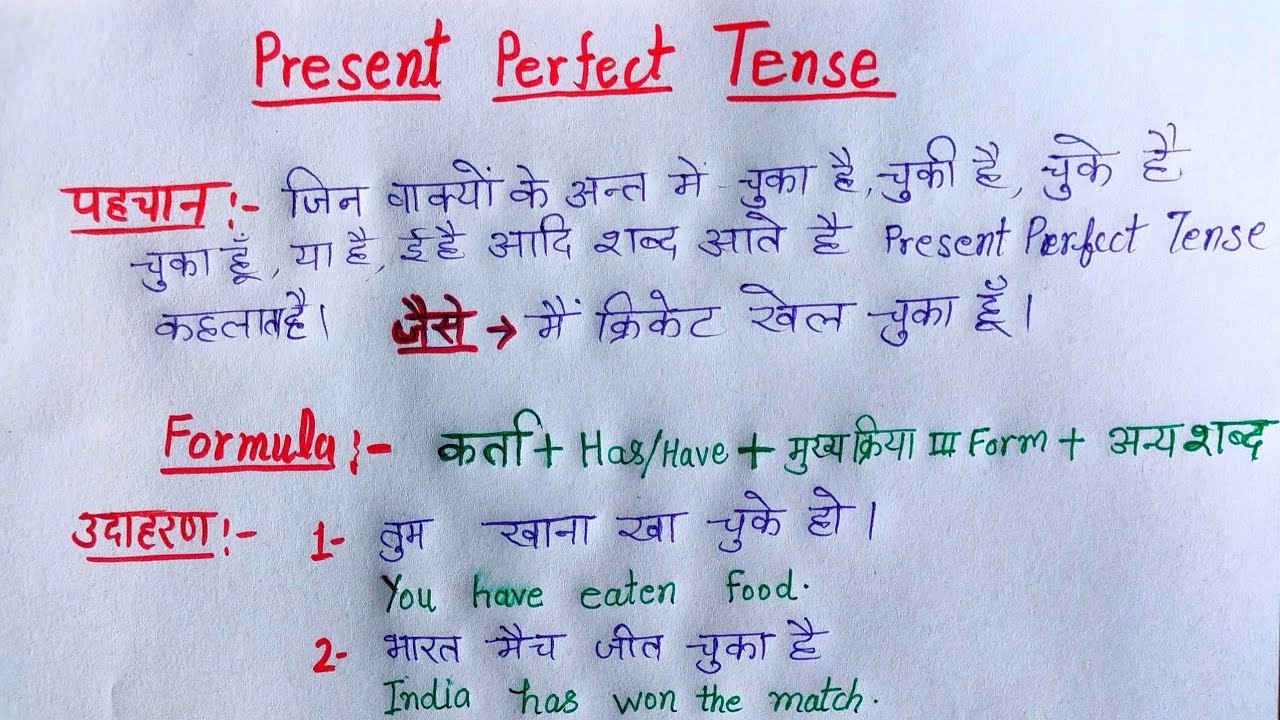 Present Perfect Tense
पहचान :- जिन वाक्यों के अन्त में चुका है, चुकी है, चुके है
चुका हूँ, या है, ई है आदि शब्द आते है Present Perfect Tense
कहलाता है। जैसे → मैं क्रिकेट खेल चुका हूँ।
Formula :- कर्ता + Has/Have + मुख्य क्रिया III Form + अन्य शब्द
उदाहरण :- 1- तुम खाना खा चुके हो।
You have eaten food.
2- भारत मैच जीत चुका है
India has won the match.